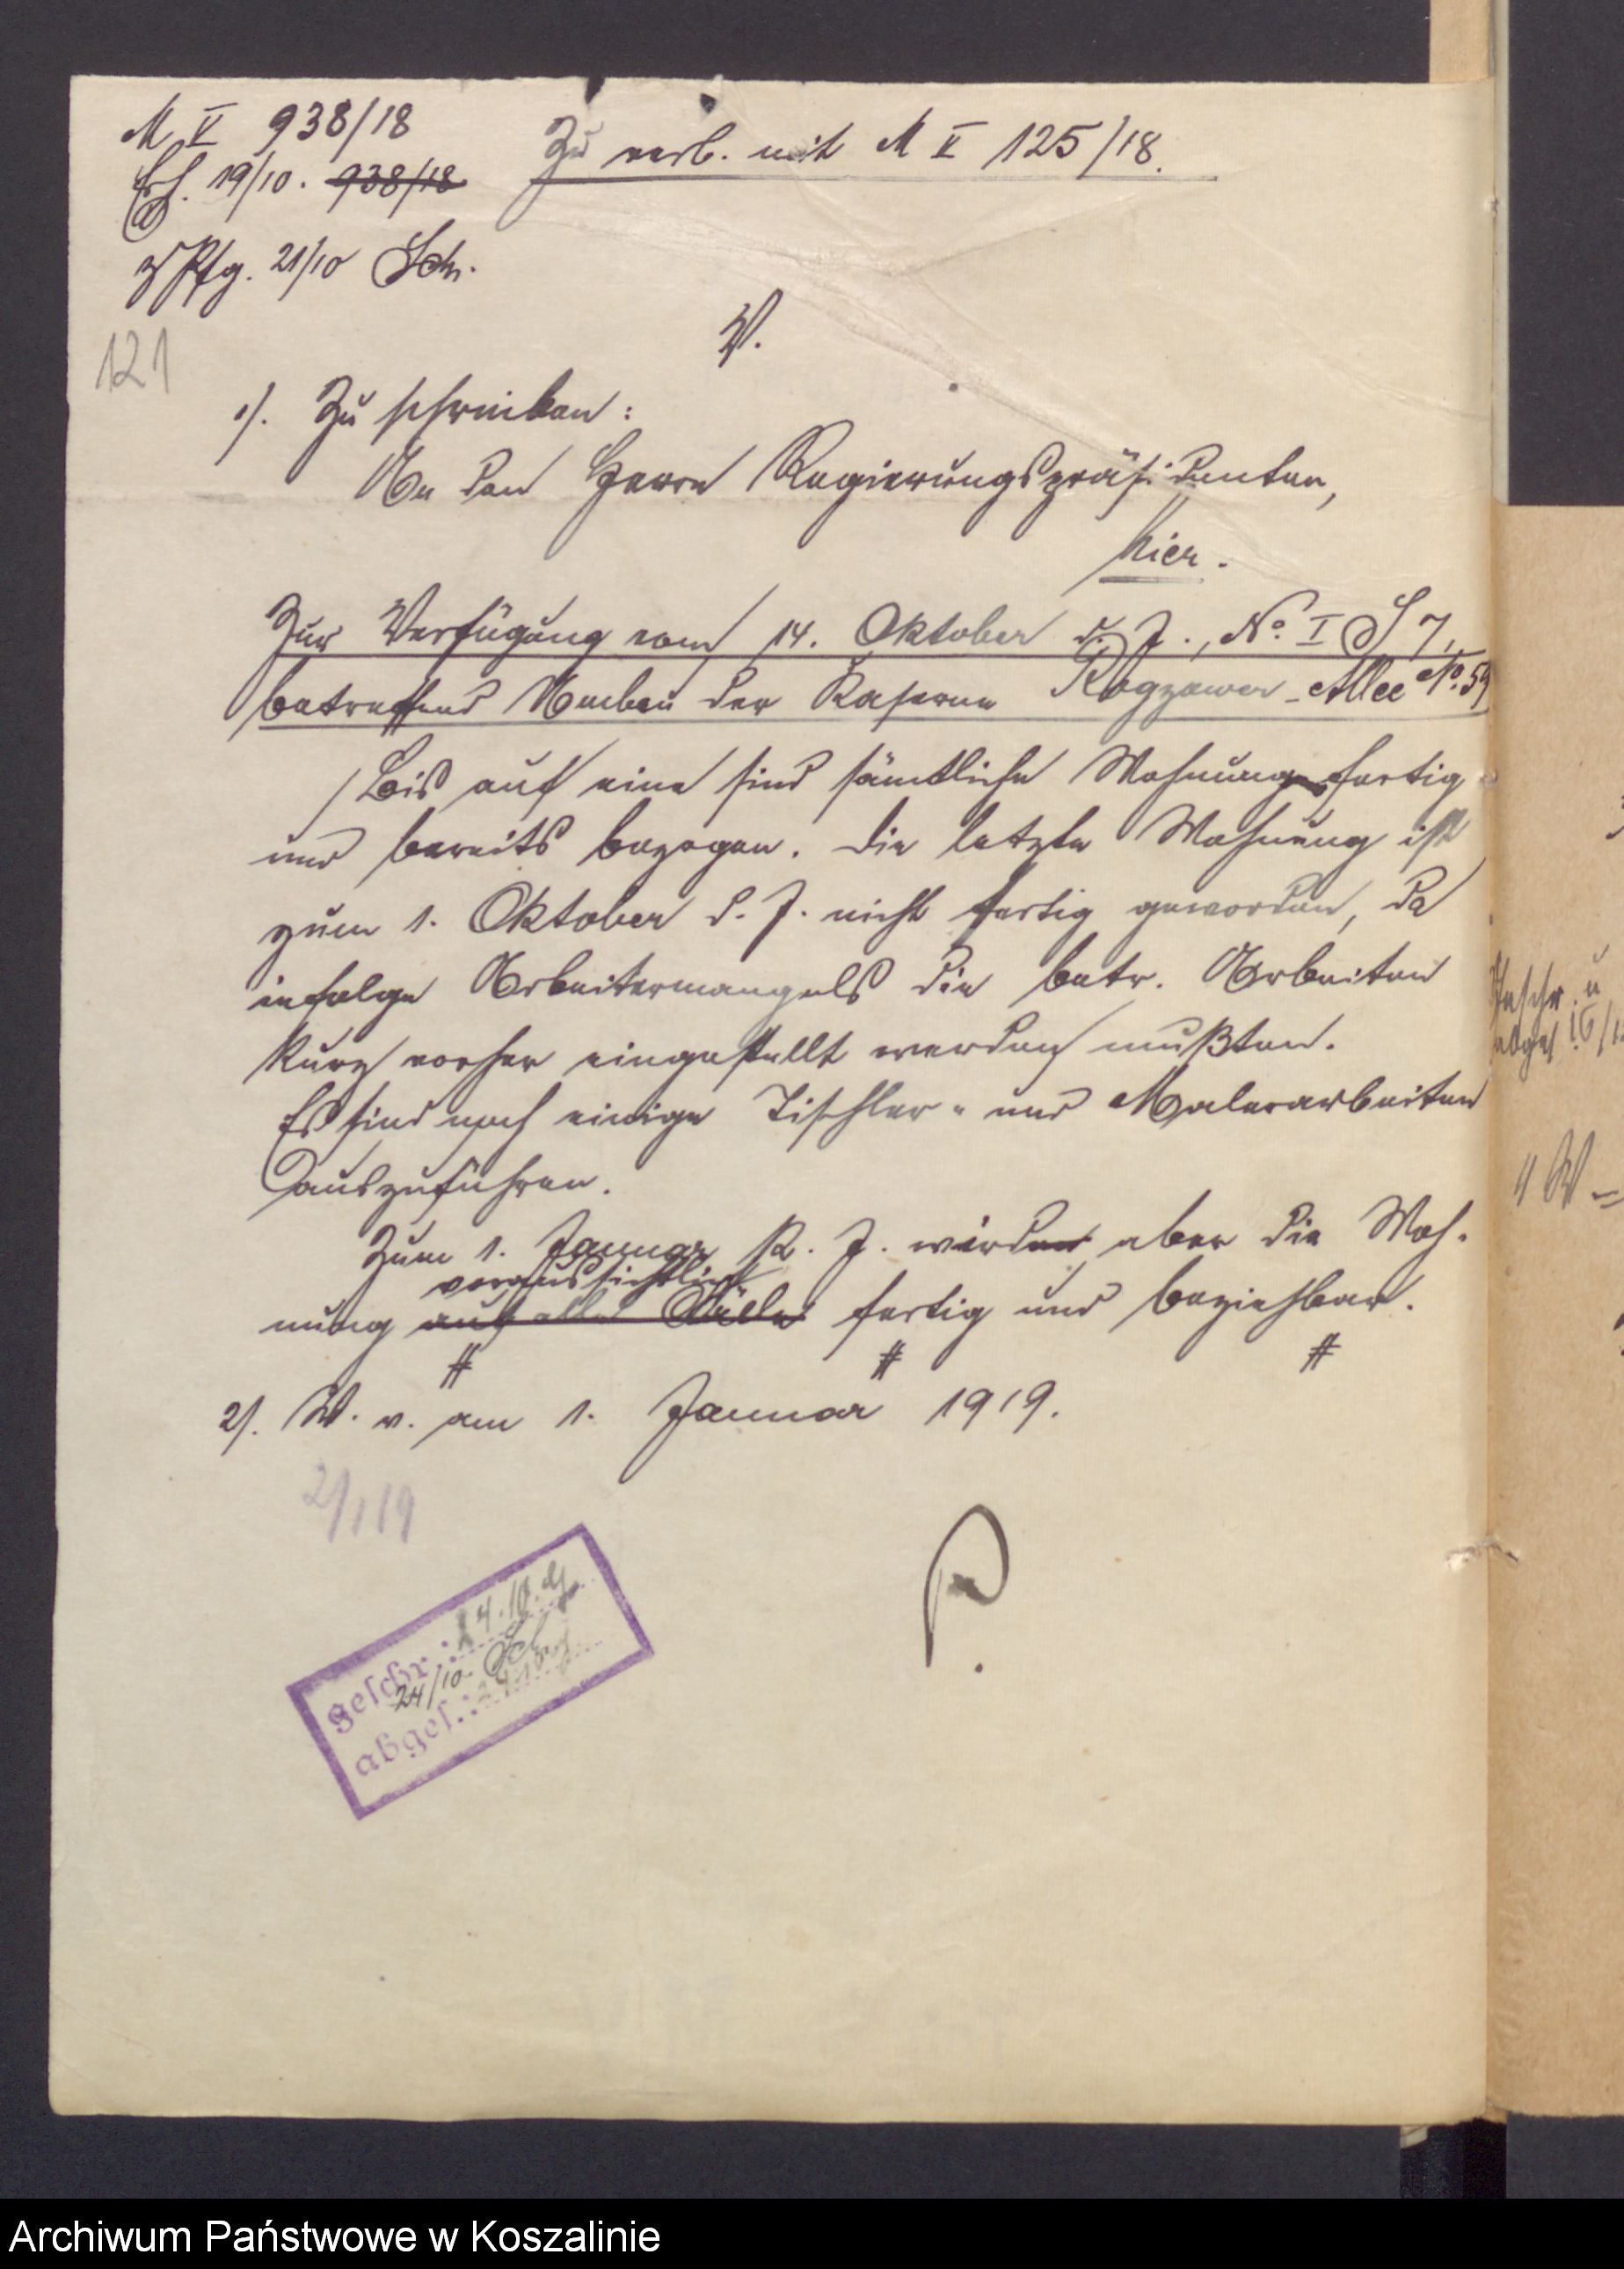 M V 938/18
Erh. 19/10. 938/18
Zu verb. mit M II 125/18.
z Pfg. 21/10 Sch.
V.
121
1/. Zu schreiben:
An den Herrn Regierungspräsidenten,
hier.
Zur Verfügung vom 14. Oktober d. J., No. I S 7,
betreffend Umbau der Kaserne Rogzower-Allee No. 59
Bis auf eine sind sämtliche Wohnungen fertig
und bereits bezogen. Die letzte Wohnung ist
zum 1. Oktober d. J. nicht fertig geworden, da
infolge Arbeitermangels die betr. Arbeiten
kurz vorher eingestellt werden mußten.
Es sind noch einige Tischler- und Malerarbeiten
auszuführen.
Zum 1. Januar k. J. werden aber die Woh-
voraussichtlich
nung auf alle Fälle fertig und beziehbar.
2/. W. v. am 1. Januar 1919.
2/1 19
P.
geschr.: 24.10.
24/10. Sch
abges.:
geschr. u
abges 16/
Archiwum Państwowe w Koszalinie